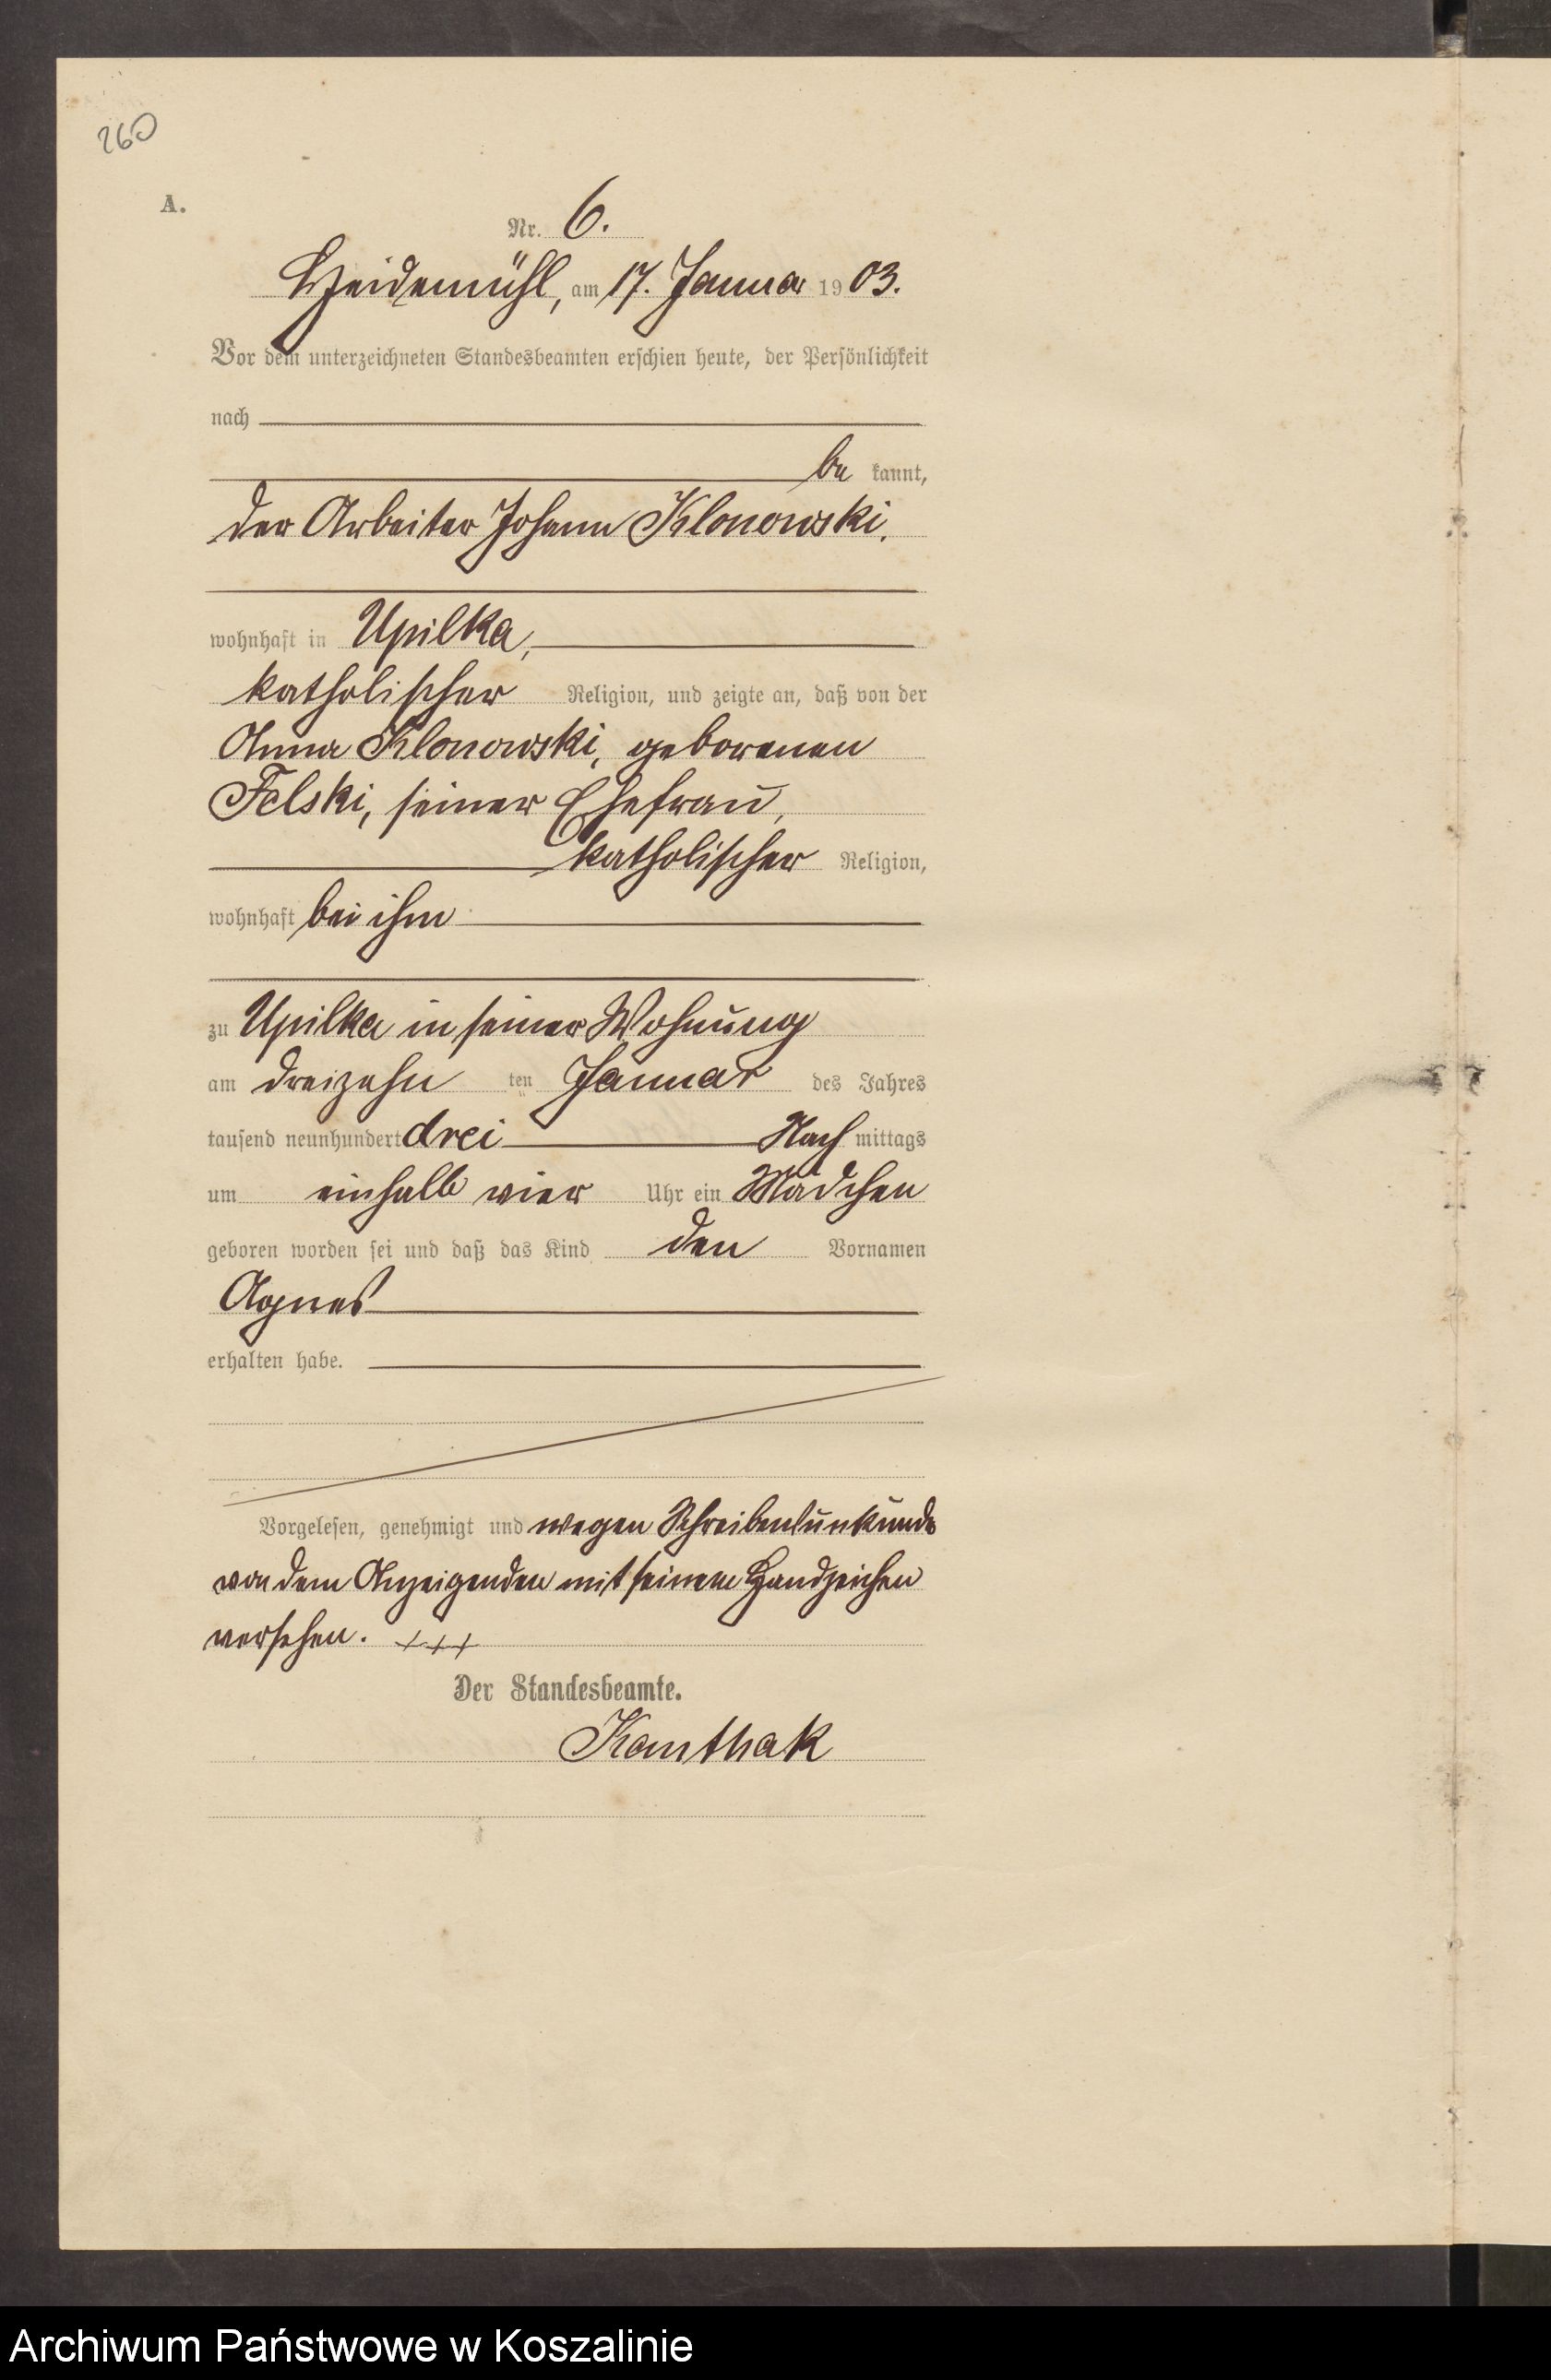 260
A.
Nr. 6.
Heidemühl, am 17. Januar 1903.
Vor dem unterzeichneten Standesbeamten erschien heute, der Persönlichkeit
nach
be kannt,
der Arbeiter Johann Klonowski,
wohnhaft in Upilka,
katholischer Religion, und zeigte an, daß von der
Anna Klonowski, geborenen
Felski, seiner Ehefrau,
katholischer Religion,
wohnhaft bei ihm
zu Upilka in seiner Wohnung
am dreizehn ten Januar des Jahres
tausend neunhundert drei Nach mittags
um einhalb vier Uhr ein Mädchen
geboren worden sei und daß das Kind den Vornamen
Agnes
erhalten habe.
Vorgelesen, genehmigt und wegen Schreibensunkunde
von dem Anzeigenden mit seinem Handzeichen
versehen. +++
Der Standesbeamte.
Kamthak
Archiwum Państwowe w Koszalinie